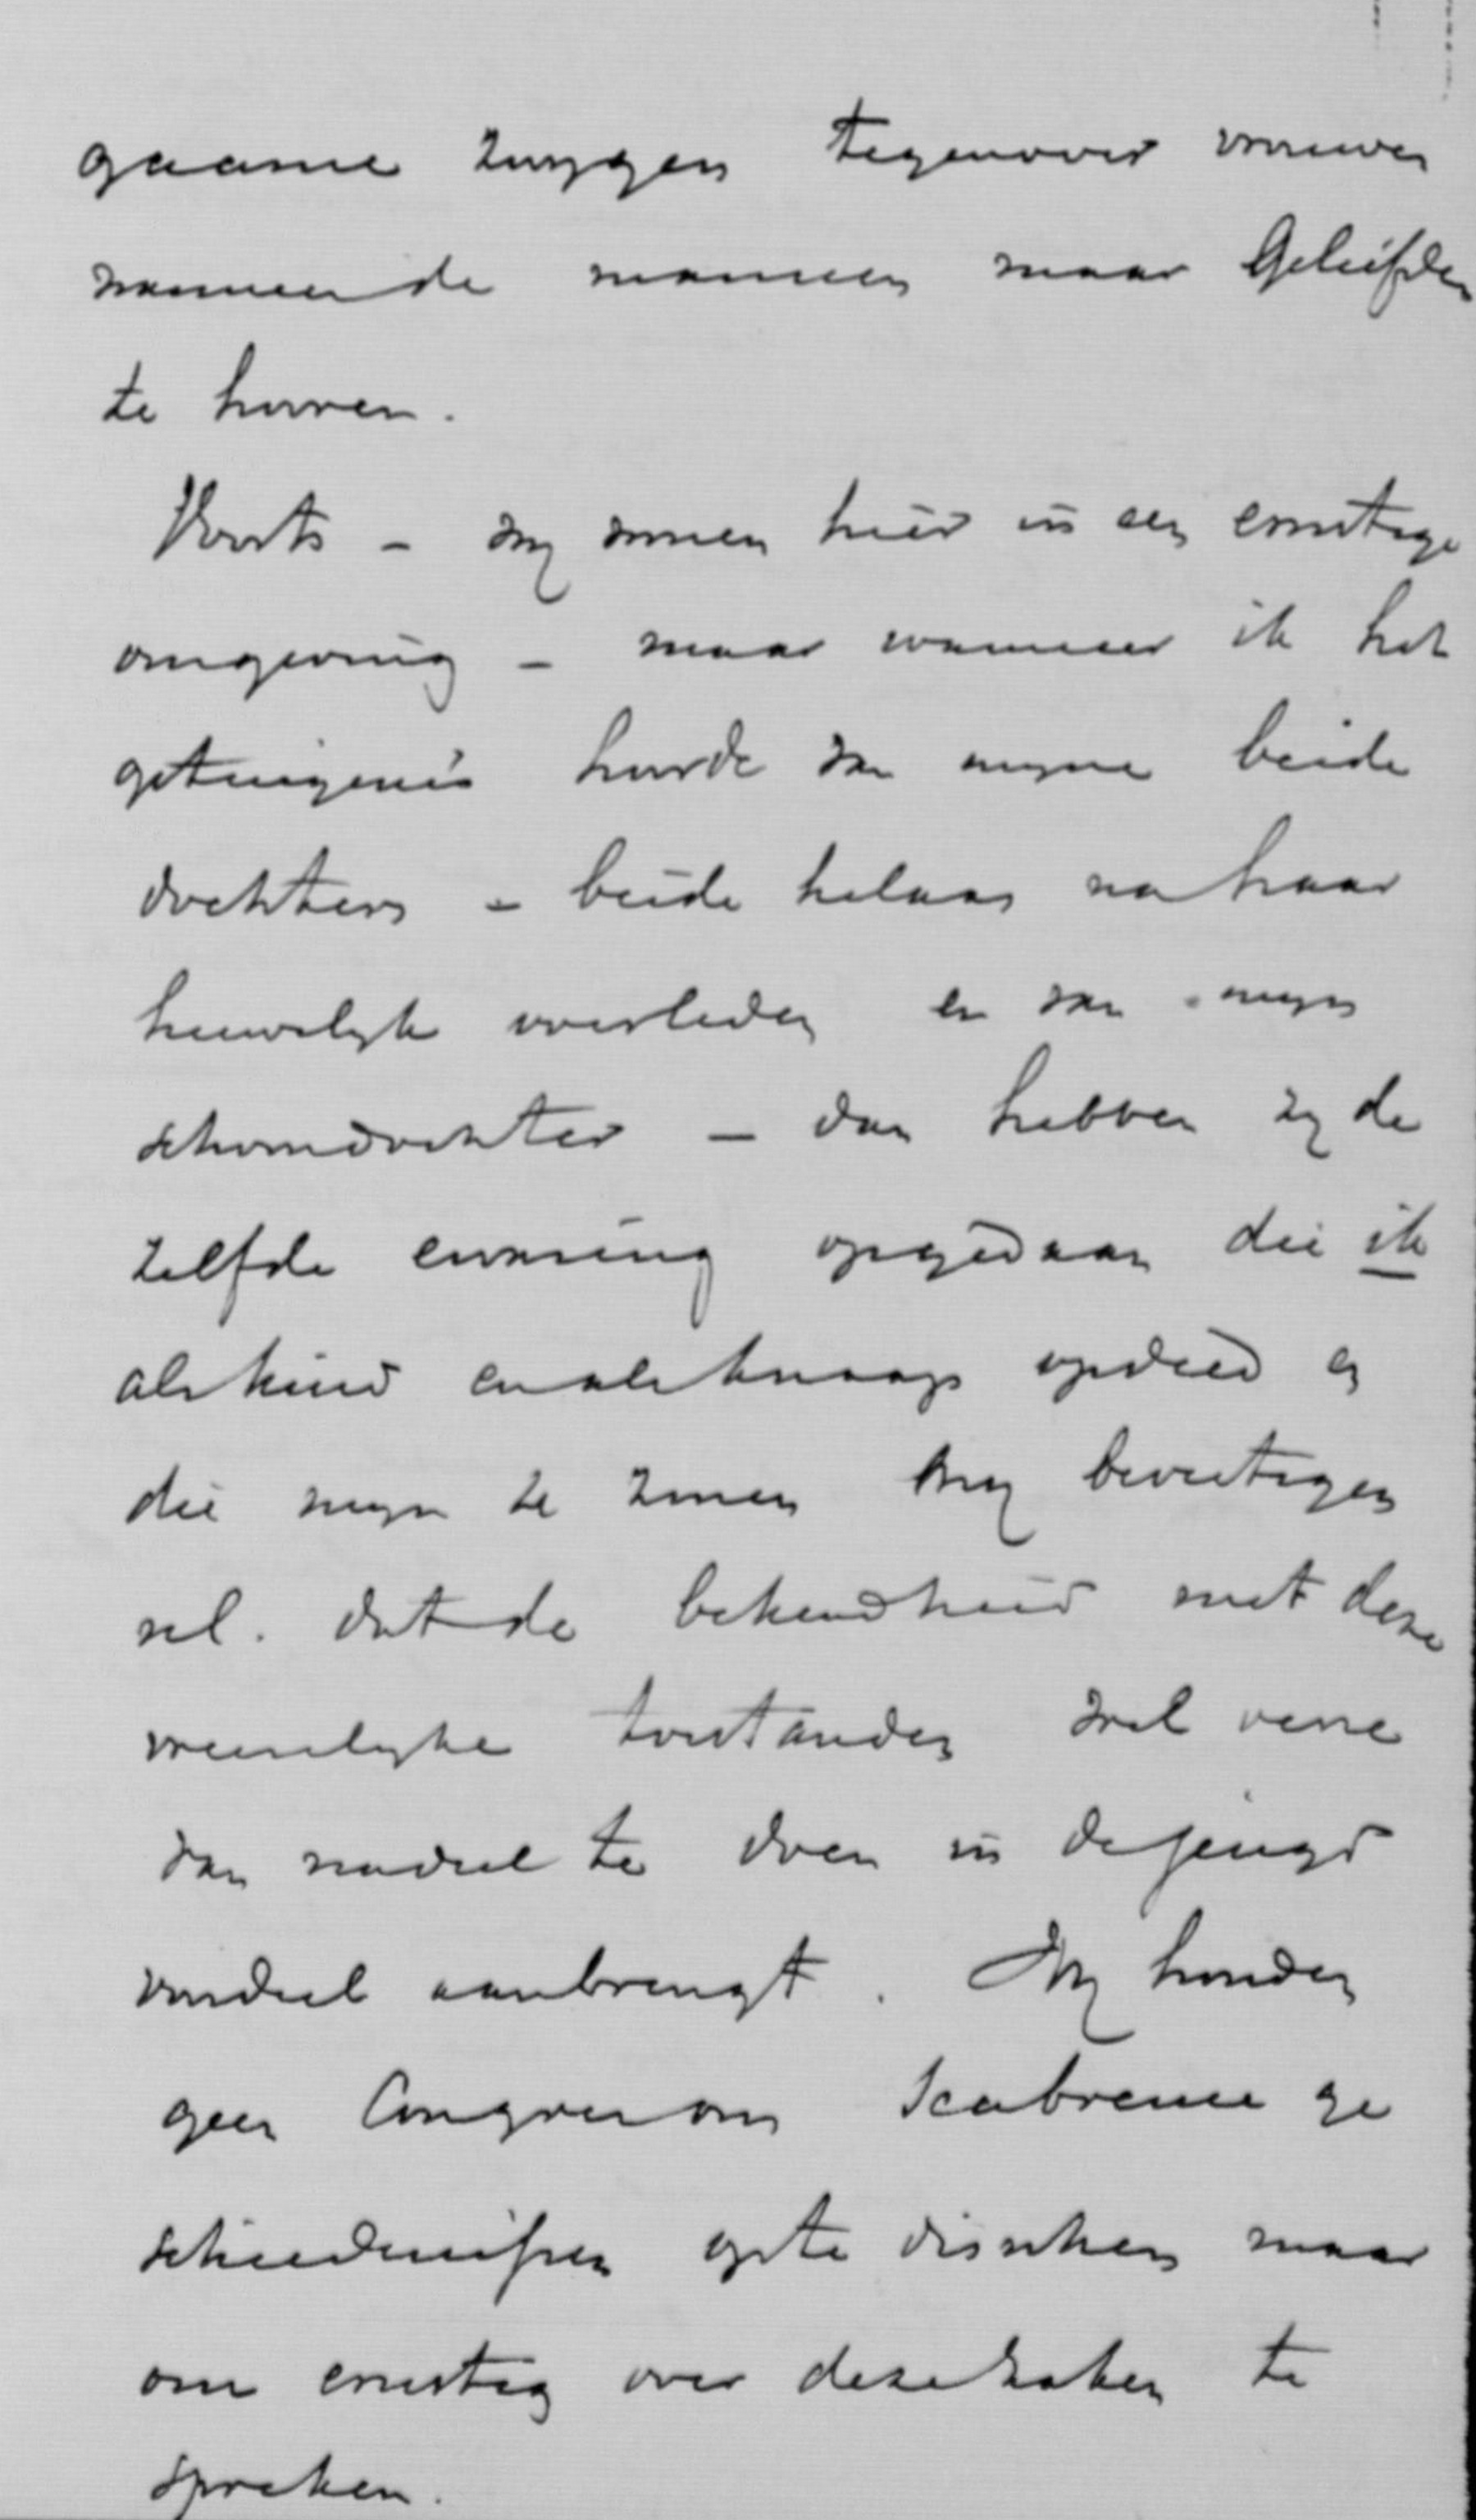 gaarne zwijgen tegenover vrouwen
wanneer de mannen maar Geliefden
te huren.
Voorts - wij wonen hier in een ernstige
omgeving - maar wanneer ik het
getuigenis hoorde van mijne beide
dochters - beide helaas na haar
huwelijk overleden en van mijn
schoondochter - dan hebben zij de
zelfde ervaring opgedaan die ik
als kind en als knaap opdeed en
die mijn zonen mij bevestigen
nl. dat de bekendheid met deze
vreeselijke toestanden wel verre
van nadeel te doen in de jeugd
voordeel aanbrengt. Wij houden
geen Congres om scabreuse ge
schiedenissen op te disschen maar
om ernstig over deze zaken te
spreken.